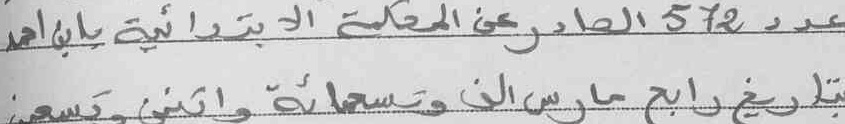 عدد 572 الصادر عن المحكمة الابتدائية بابن احمد
بتاريخ رابع مارس الف وتسعمائة واثنين وتسعين